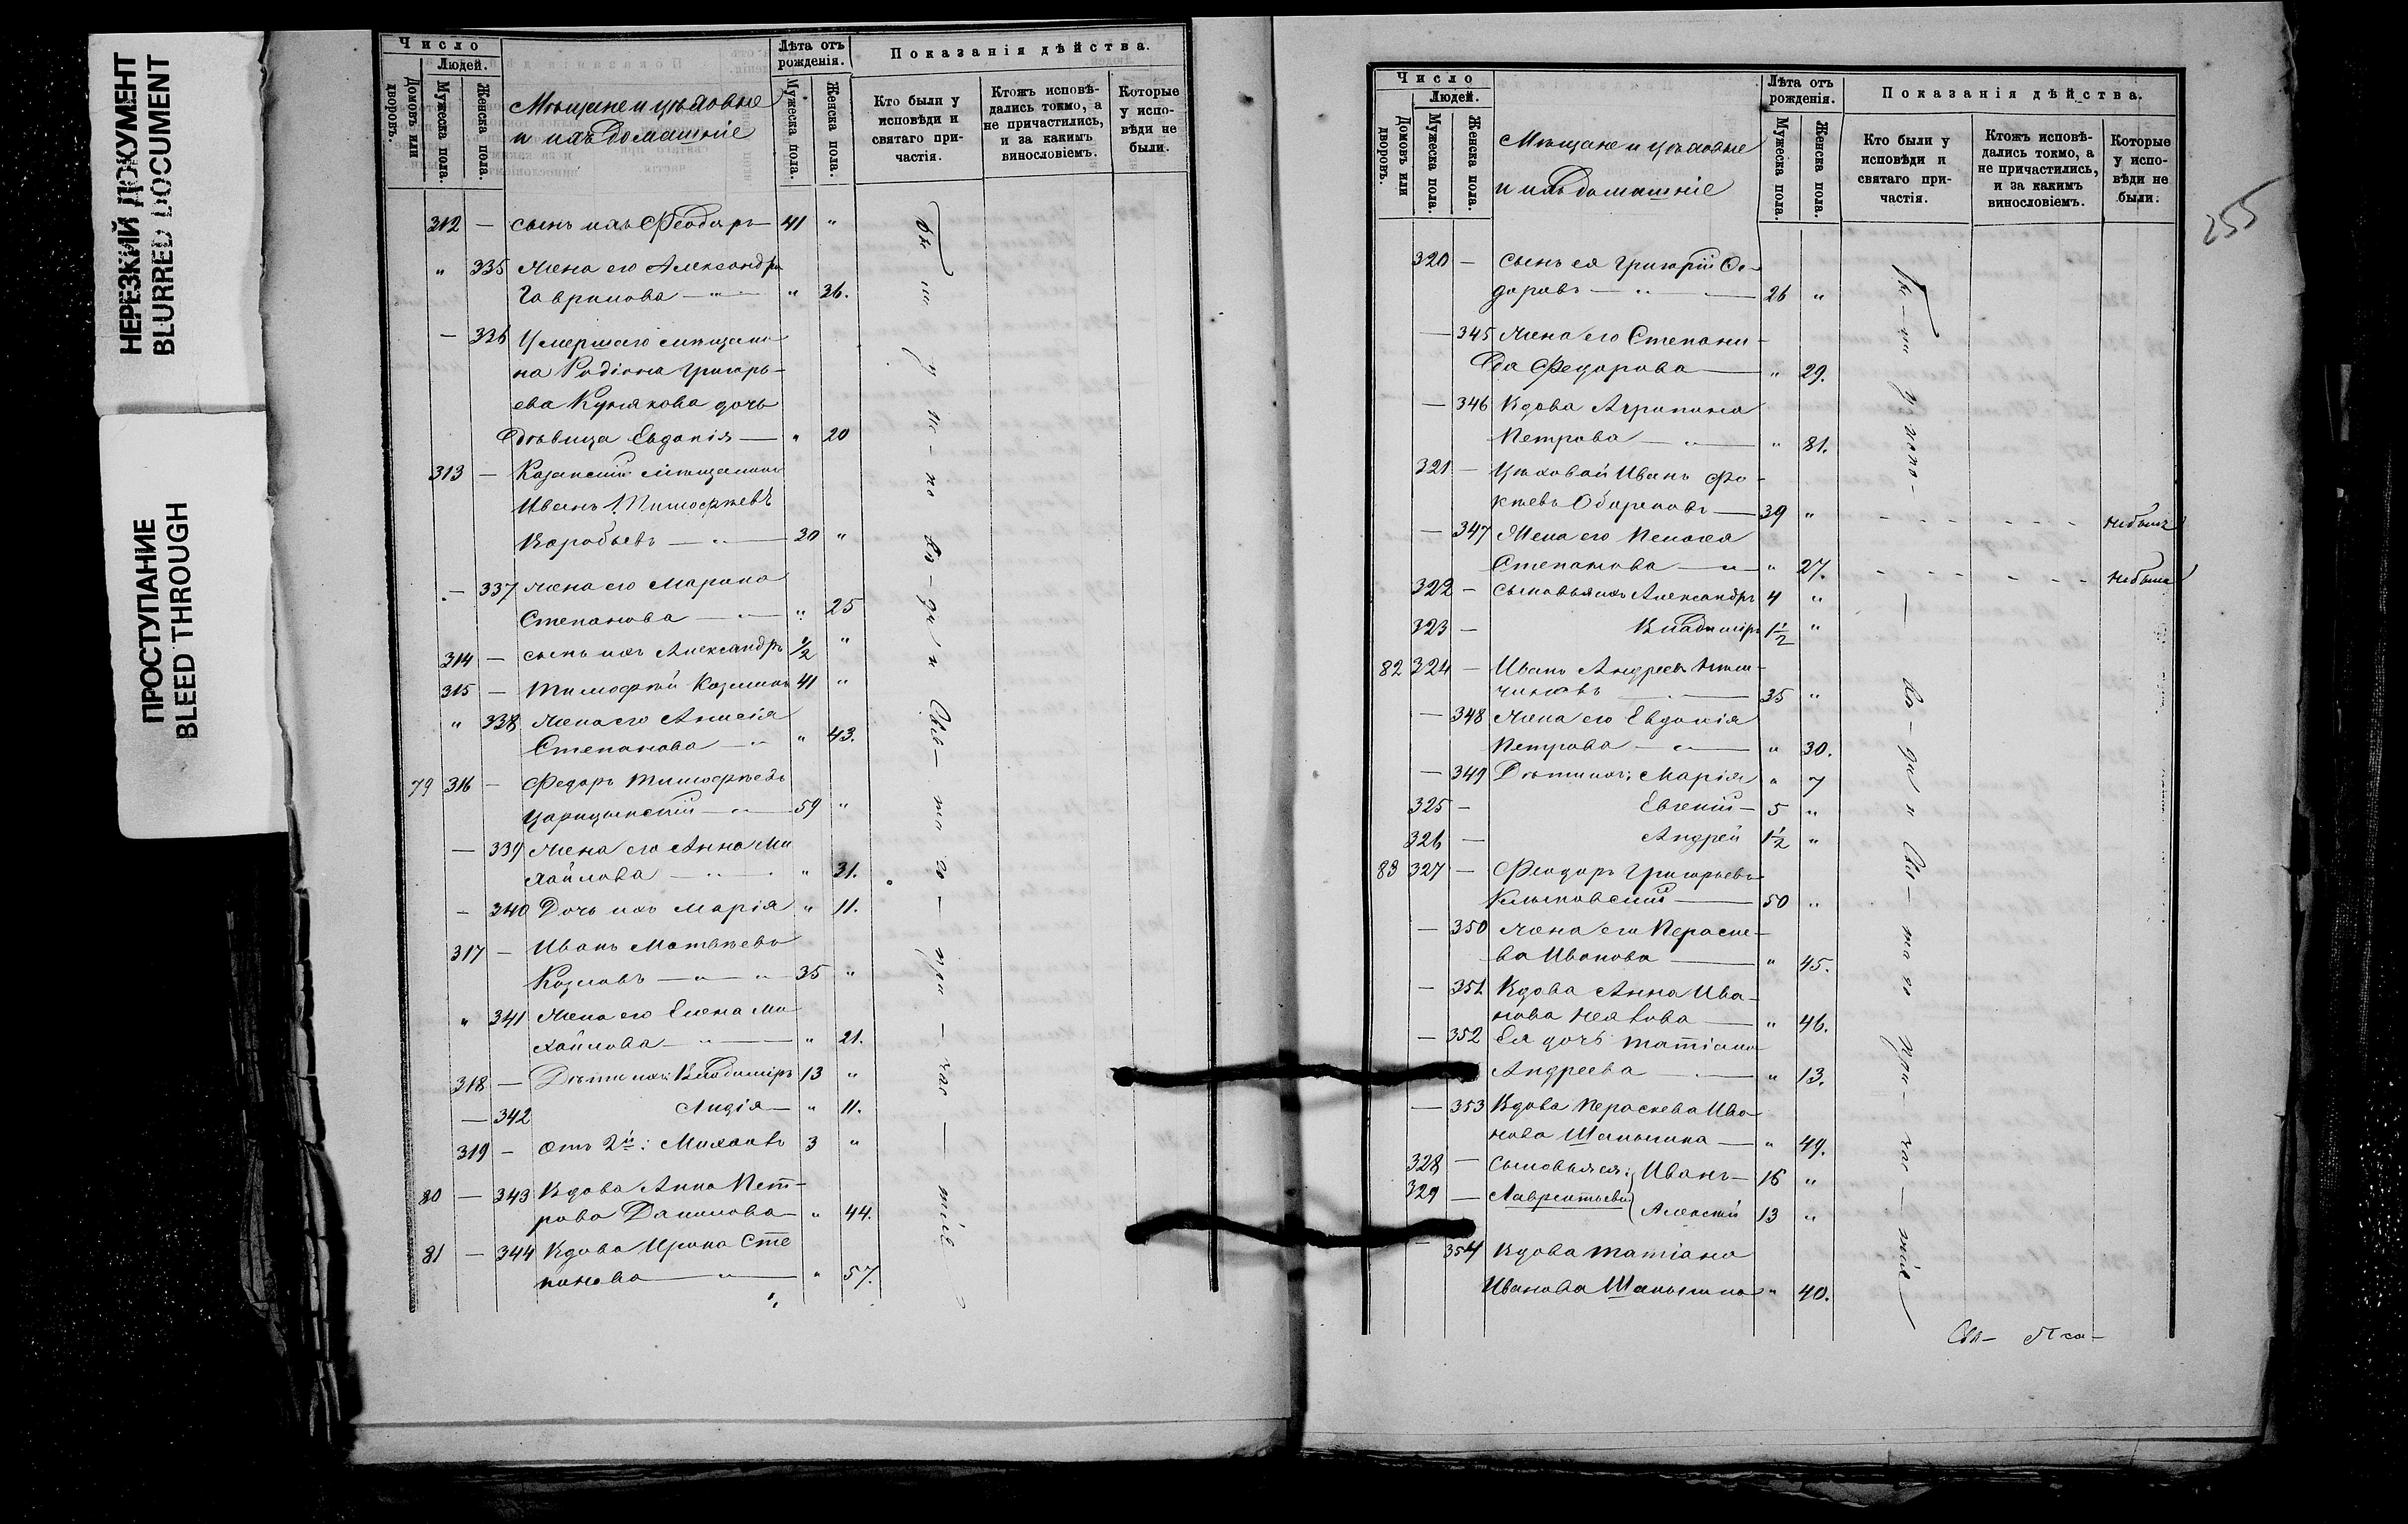 НЕРЕЗКИЙ ДОКУМЕНТ
BLURRED DOCUMENT
ПРОСТУПАНИЕ
BLEED THROUGH
Число
Людей.
Домовъ или дворовъ.
Мужеска пола.
Женска пола.
Мѣщане и цѣховые
и ихъ домашніе
Лѣта отъ рожденія.
Мужеска пола.
Женска пола.
Показанія дѣйства.
Кто были у исповѣди и святаго причастія.
Ктожъ исповѣдались токмо, а не причастились, и за какимъ винословіемъ.
Которые у исповѣди не были.
312 — сынъ ихъ Феодоръ — 41 "
" 335 жена его Александра
Гаврилова — " — " 36.
— 336 Умершаго мѣщани
на Родіона Григорь-
ева Кунакова дочь
дѣвица Евдокія — " 20
313 — Казанскій мѣщанинъ
Иванъ Тимофѣевъ
Воробьевъ — " — 30 "
— 337 жена его Марина
Степанова — " — " 25
314 — сынъ ихъ Александръ 1/2 "
315 — Тимофѣй Козминъ 41 "
" 338 жена его Анисія
Степанова — " " 43.
79 316 — Федоръ Тимофѣевъ
Царицынскій — " — 59 "
— 339 жена его Анна Ми
хайлова — " — " 31.
— 340 Дочь ихъ Марія " 11.
317 — Иванъ Матвѣевъ
Козловъ — " — " 35 "
" 341 жена его Елена Ми
хайлова — " — " 21.
318 — Дѣти ихъ: Владиміръ 13 "
— 342 Лидія — " 11.
319 — отъ 2й: Михаилъ 3 "
80 — 343 Вдова Анна Пет-
рова Данилова — " 44.
81 — 344 Вдова Ирина Сте
панова — " — " 57.
Бы ли у ис - по вѣ - ди и Свя - та го - при - час - тія
Число
Людей.
Домовъ или дворовъ.
Мужеска пола.
Женска пола.
Мѣщане и цѣховые
и ихъ домашніе
Лѣта отъ рожденія.
Мужеска пола.
Женска пола.
Показанія дѣйства.
Кто были у исповѣди и святаго причастія.
Ктожъ исповѣдались токмо, а не причастились, и за какимъ винословіемъ.
Которые у исповѣди не были.
255
320 — сынъ ея Григорій Ѳе-
доровъ — " — 26 "
— 345 жена его Степани-
да Федорова — " 29.
— 346 Вдова Агрипина
Петрова — " — " 81.
321 — Цѣховой Иванъ Фо-
кѣевъ — 39 " - - - - - - небылъ
— 347 Жена его Пелагея
Степанова — " — " 27. - - - - - - небыла
322 — сыновья ихъ Александръ 4 "
323 — Владиміръ 1 1/2 "
82 324 — Иванъ Андреевъ
35 "
— 348 жена его Евдокія
Петрова — " — " 30.
— 349 Дѣти ихъ: Марія " 7
325 — Евгеній — 5 "
326 — Андрей 1 1/2 "
83 327 — Феодоръ Григорьевъ
50 "
— 350 жена его Параске-
ва Иванова — " 45.
— 351 Вдова Анна Ива-
нова — " 46.
— 352 Ея дочь Татіана
Андреева — " 13.
— 353 Вдова Параскева Ива
нова Шапыгина — " 49.
328 — сыновья ея: Иванъ — 16 "
329 — Лаврентьевы Алексѣй 13 "
— 354 Вдова Татіана
Иванова Шапыгина " 40.
Бы - ли у испо - вѣ - ди и Свя - та го при час - тія